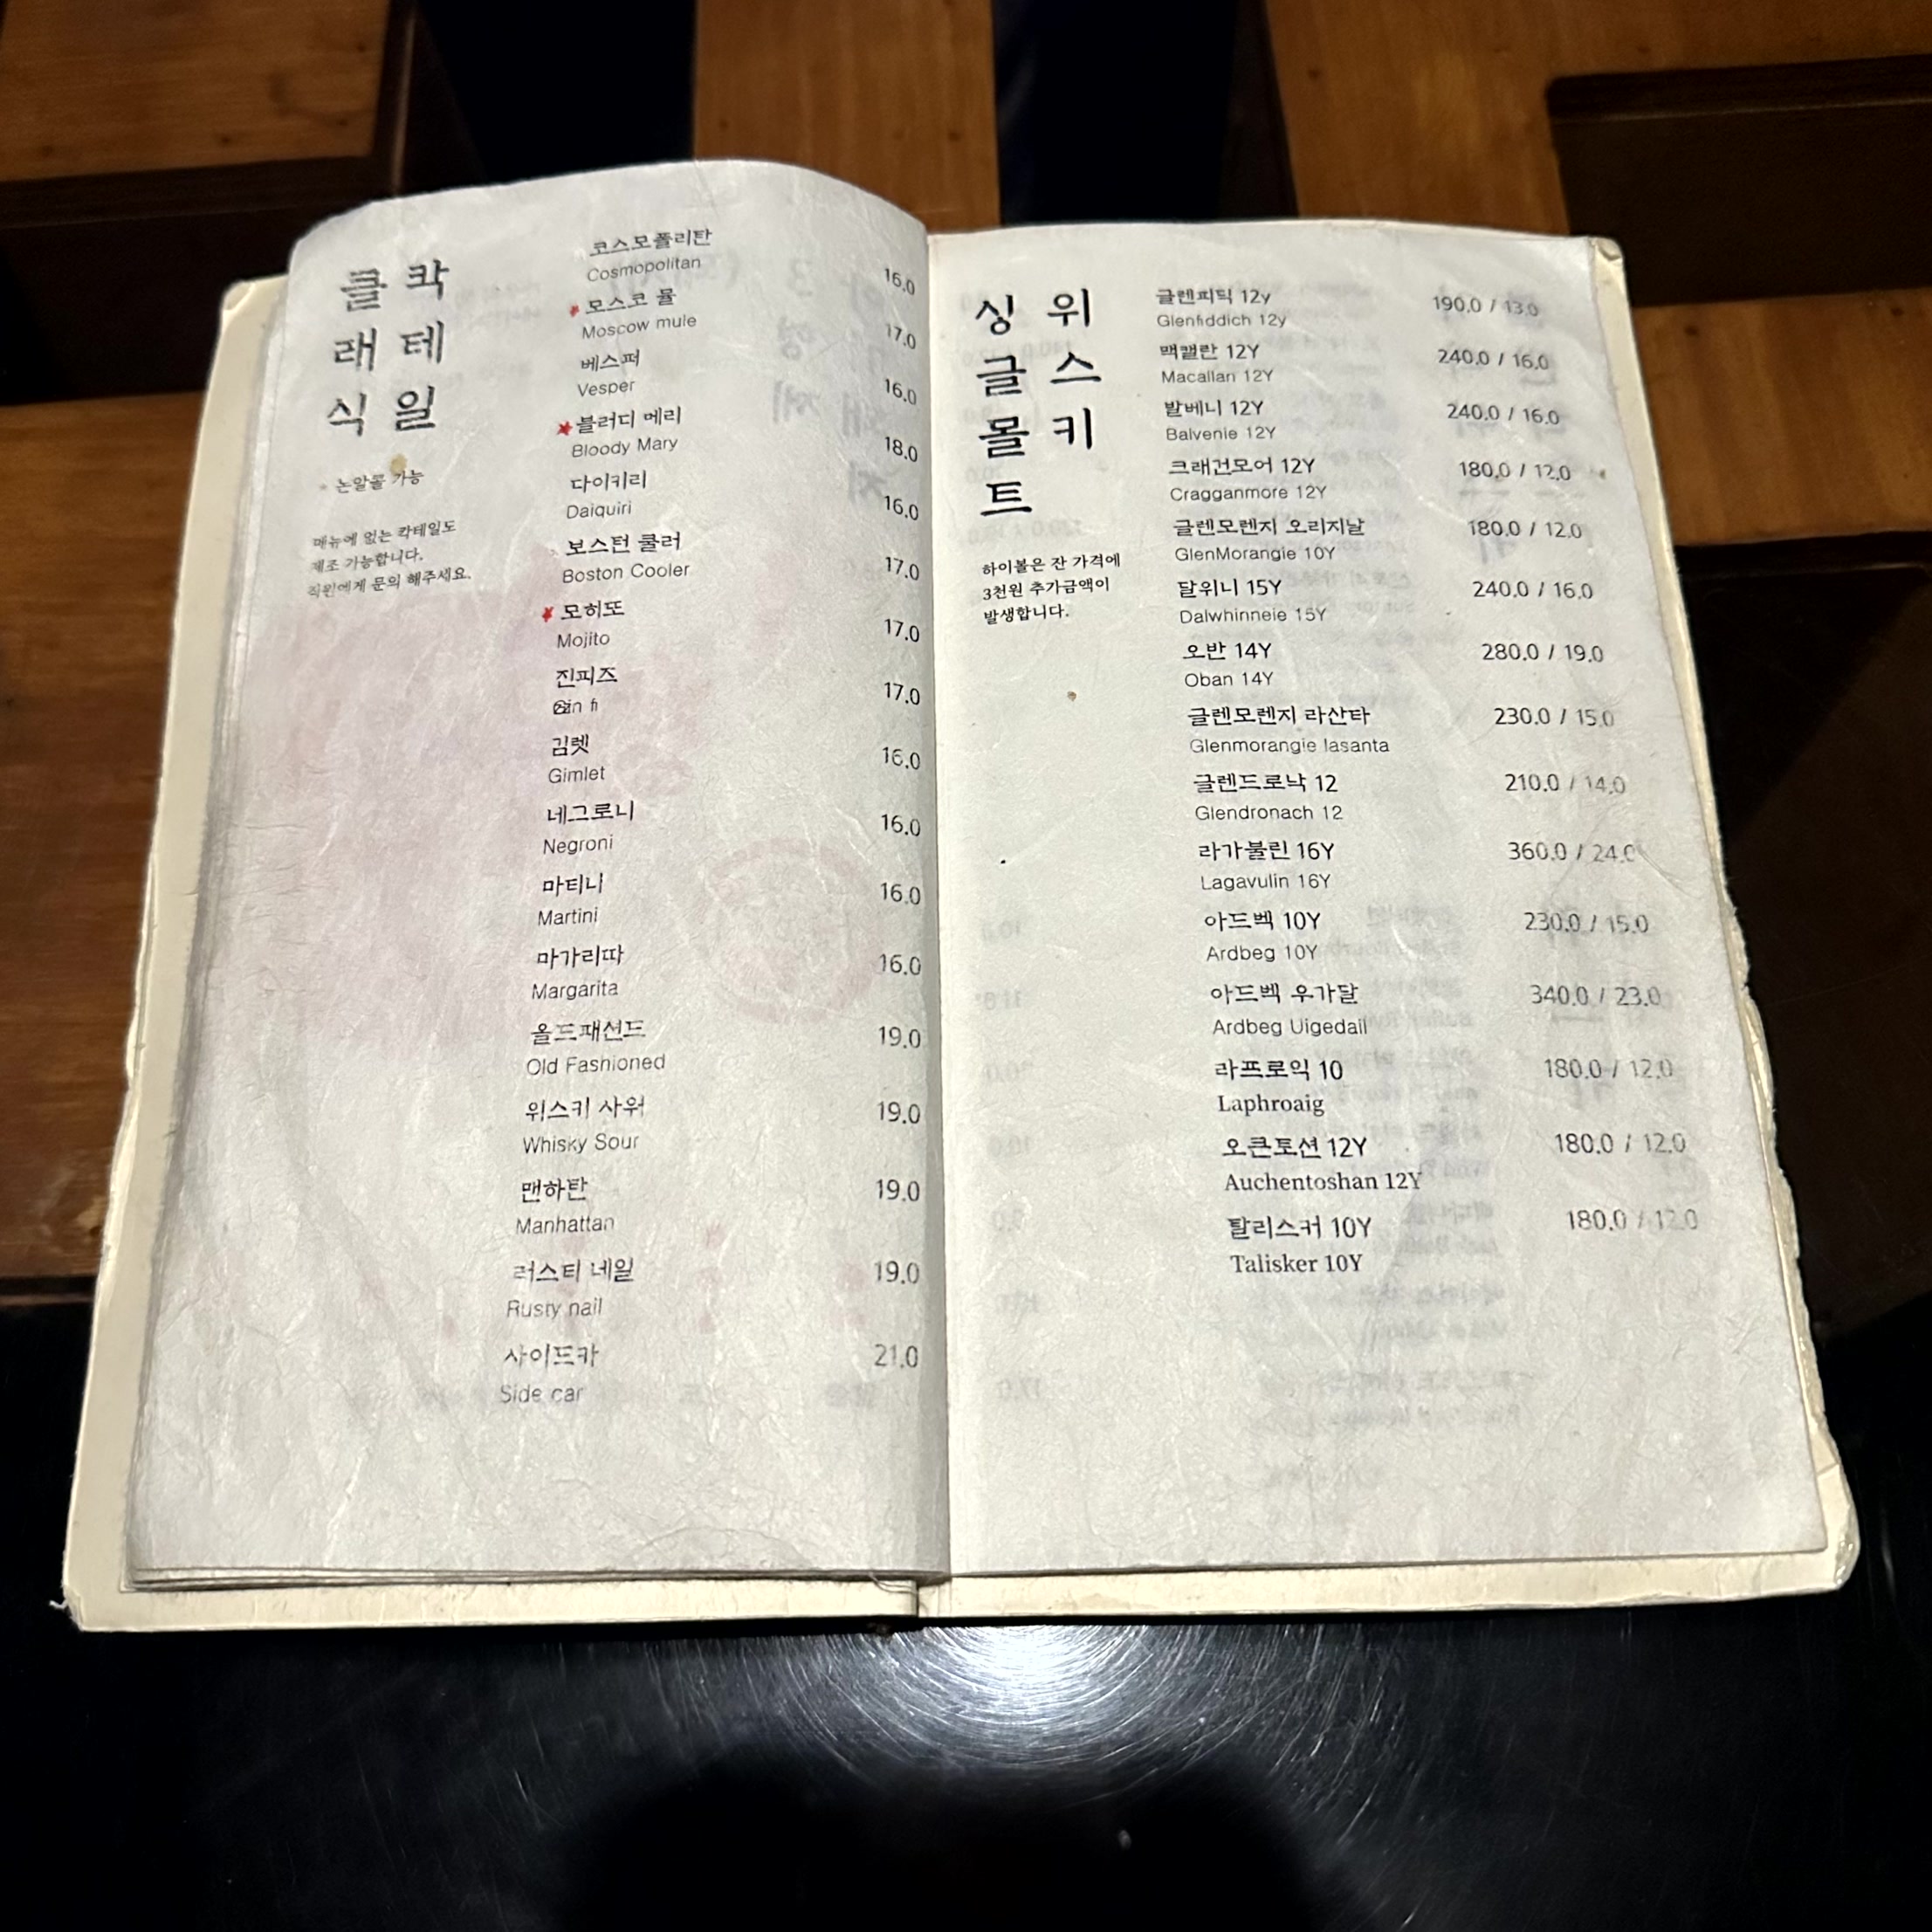 칵테일
클래식
* 논알콜 가능
메뉴에 없는 칵테일도
제조 가능합니다.
직원에게 문의 해주세요.
코스모폴리탄
Cosmopolitan 16.0
모스코 뮬
Moscow mule 17.0
베스퍼
Vesper 16.0
블러디 메리
Bloody Mary 18.0
다이키리
Daiquiri 16.0
보스턴 쿨러
Boston Cooler 17.0
모히또
Mojito 17.0
진피즈 17.0
fi
김렛
Gimlet 16.0
네그로니
Negroni 16.0
마티니
Martini 16.0
마가리따
Margarita 16.0
올드패션드
Old Fashioned 19.0
위스키 사워
Whisky Sour 19.0
맨하탄
Manhattan 19.0
러스티 네일
Rusty nail 19.0
사이드카
Side car 21.0
위스키
싱글몰트
하이볼은 잔 가격에
3천원 추가금액이
발생합니다.
글렌피딕 12y 190.0 / 13.0
Glenfiddich 12y
맥캘란 12Y 240.0 / 16.0
Macallan 12Y
발베니 12Y 240.0 / 16.0
Balvenie 12Y
크래건모어 12Y 180.0 / 12.0
Cragganmore 12Y
글렌모렌지 오리지날 180.0 / 12.0
GlenMorangie 10Y
달위니 15Y 240.0 / 16.0
Dalwhinneie 15Y
오반 14Y 280.0 / 19.0
Oban 14Y
글렌모렌지 라산타 230.0 / 15.0
Glenmorangie lasanta
글렌드로낙 12 210.0 / 14.0
Glendronach 12
라가불린 16Y 360.0 / 24.0
Lagavulin 16Y
아드벡 10Y 230.0 / 15.0
Ardbeg 10Y
아드벡 우가달 340.0 / 23.0
Ardbeg Uigedail
라프로익 10 180.0 / 12.0
Laphroaig
오큰토션 12Y 180.0 / 12.0
Auchentoshan 12Y
탈리스커 10Y 180.0 / 12.0
Talisker 10Y